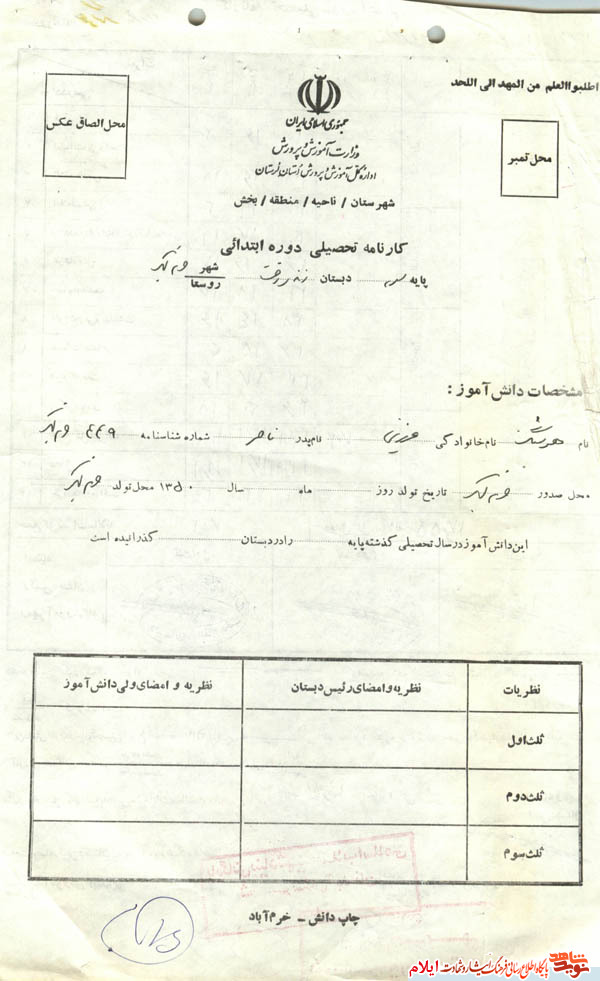 اطلبوا العلم من المهد الی اللحد
محل الصاق عکس
جمهوری اسلامی ایران
محل تمبر
وزارت آموزش و پرورش
اداره کل آموزش و پرورش استان لرستان
شهرستان / ناحیه / منطقه / بخش
کارنامه تحصیلی دوره ابتدائی
پایه سوم دبستان شهر خرم آباد
روستا
مشخصات دانش آموز :
نام هوشنگ نام خانوادگی عزیزی نام پدر ناصر شماره شناسنامه ۴۴۹ خرم آباد
محل صدور خرم آباد تاریخ تولد روز ماه سال ۱۳۵۰ محل تولد خرم آباد
این دانش آموز در سال تحصیلی گذشته پایه را در دبستان گذرانیده است
نظریات نظریه و امضای رئیس دبستان نظریه و امضای ولی دانش آموز
ثلث اول
ثلث دوم
ثلث سوم
چاپ دانش - خرم آباد
نوید شاهد پایگاه اطلاع رسانی فرهنگ ایثار و شهادت ایلام